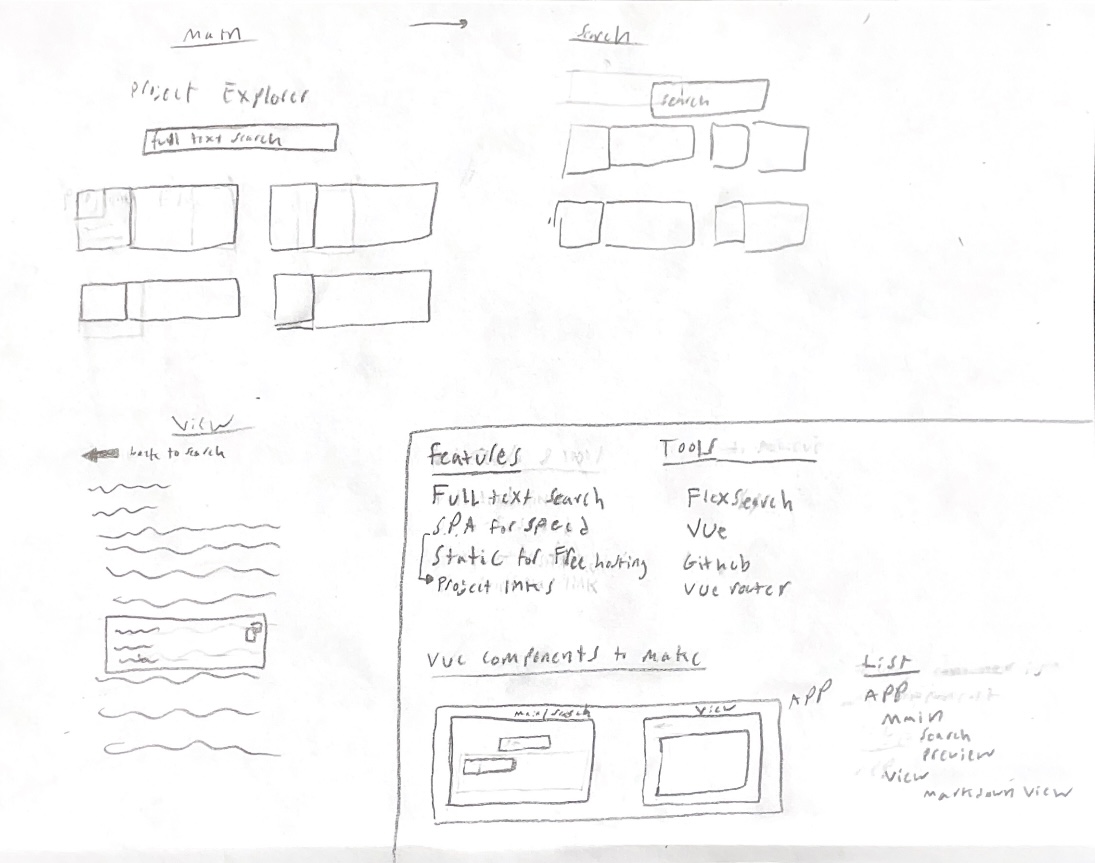 Main
Project Explorer
full text search
Search
search
View
back to search
Features
Full text search
S.P.A for speed
Static for Free hosting
Project links
Tools
FlexSearch
Vue
Github
Vue router
Vue components to make
main/search
View
APP
List
APP
Main
search
preview
View
markdown view